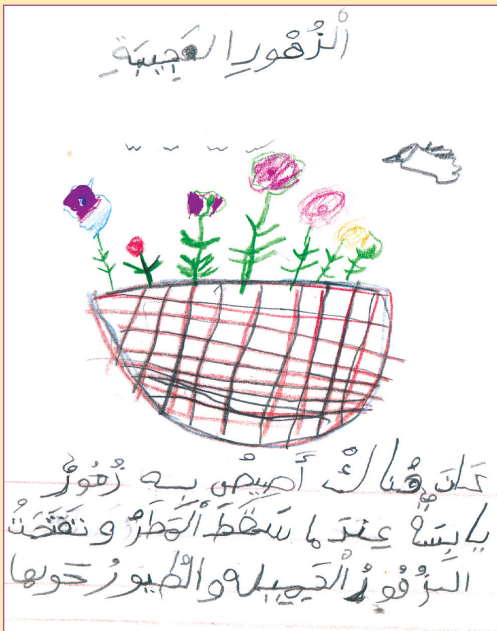 الْزُهْورِ العَجِيبَةِ
كان هُناكْ أَصِيصْ بِه زُهُورٌ
يابِسَةٌ عِندَ ما سَقَطَ الْمَطَرُ وتَفَتَحَتُ
الزُهُورُ الْجَمِيله والْطُيورُ حَولها